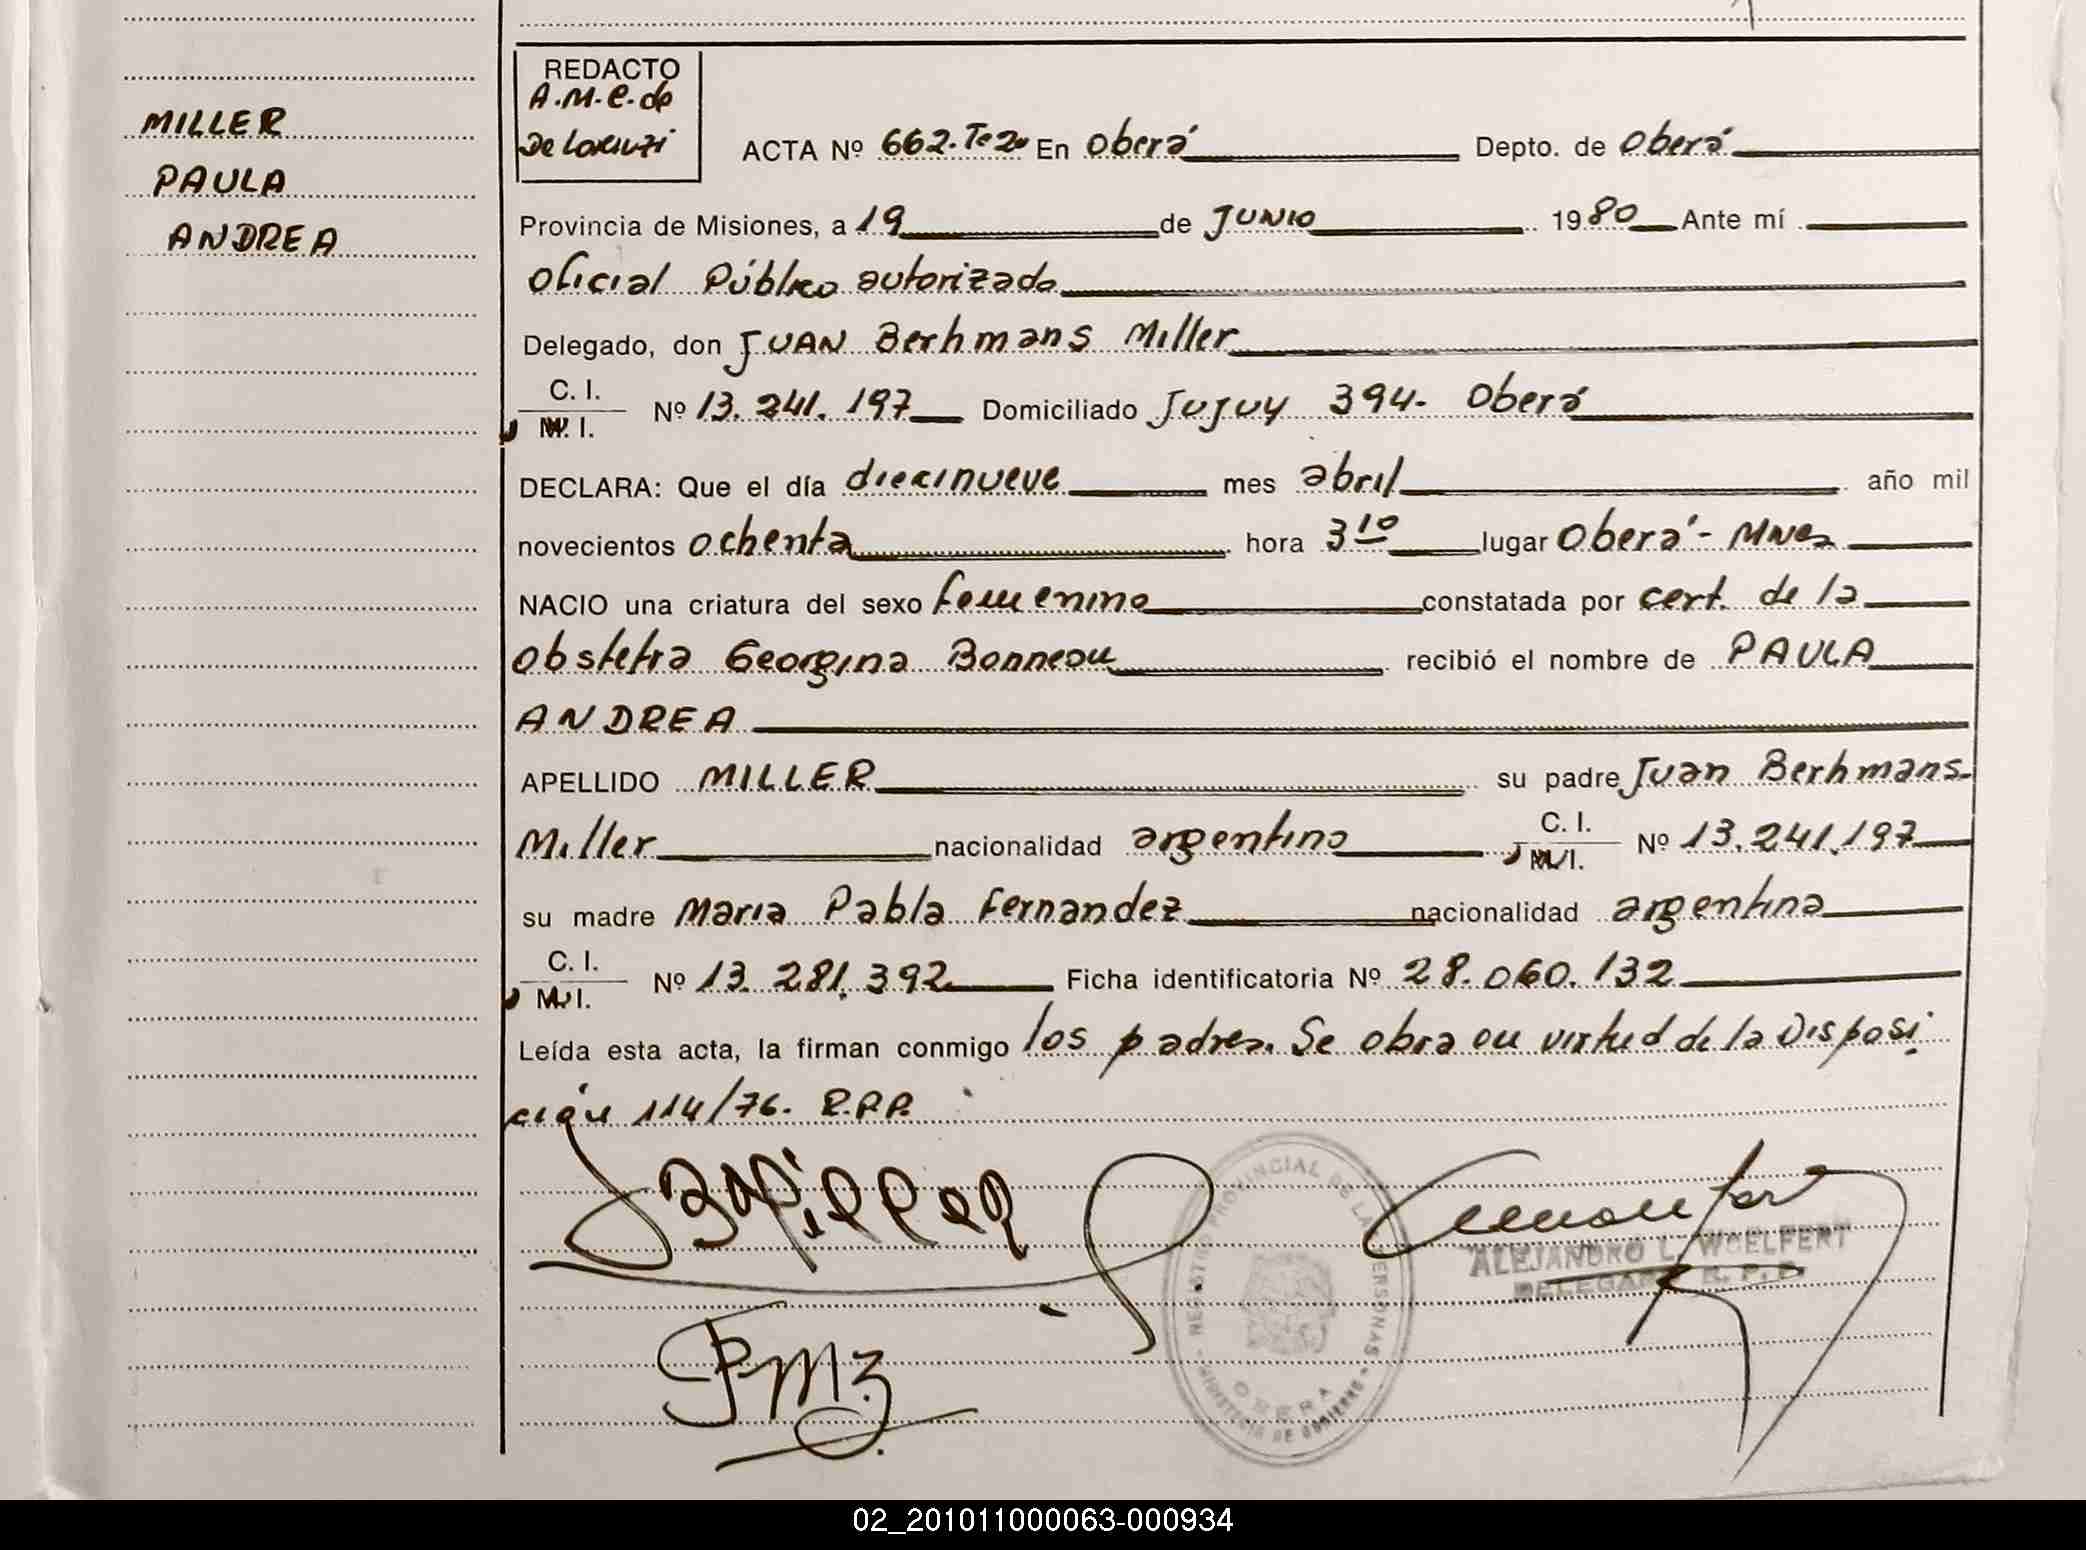 MILLER
PAULA
ANDREA
REDACTO
A.M.C. de
De Lorenzi
ACTA Nº 662. Tº 2º En Oberá Depto. de Oberá
Provincia de Misiones, a 19 de JUNIO 1980 Ante mí
Oficial Público autorizado
Delegado, don JUAN Berhmans Miller
C. I.
M. I.
Nº 13.241.197 Domiciliado Jujuy 394. Oberá
DECLARA: Que el día diecinueve mes abril año mil
novecientos ochenta hora 3 10 lugar Oberá - Mnes
NACIO una criatura del sexo femenino constatada por cert. de la
obstetra Georgina Bonneau recibió el nombre de PAULA
ANDREA
APELLIDO MILLER su padre Juan Berhmans
Miller nacionalidad argentino C. I. M. I. Nº 13.241.197
su madre Maria Pabla Fernandez nacionalidad argentina
C. I.
M. I.
Nº 13.281.392 Ficha identificatoria Nº 28.060.132
Leída esta acta, la firman conmigo los padres. Se obra en virtud de la Disposi
ción 114/76. R.P.P.
JBMiller
REGISTRO PROVINCIAL DE LAS PERSONAS
OBERA
DE GOBIERNO
ALEJANDRO L. WOELFERT
DELEGADO R. P. P.
02_201011000063-000934